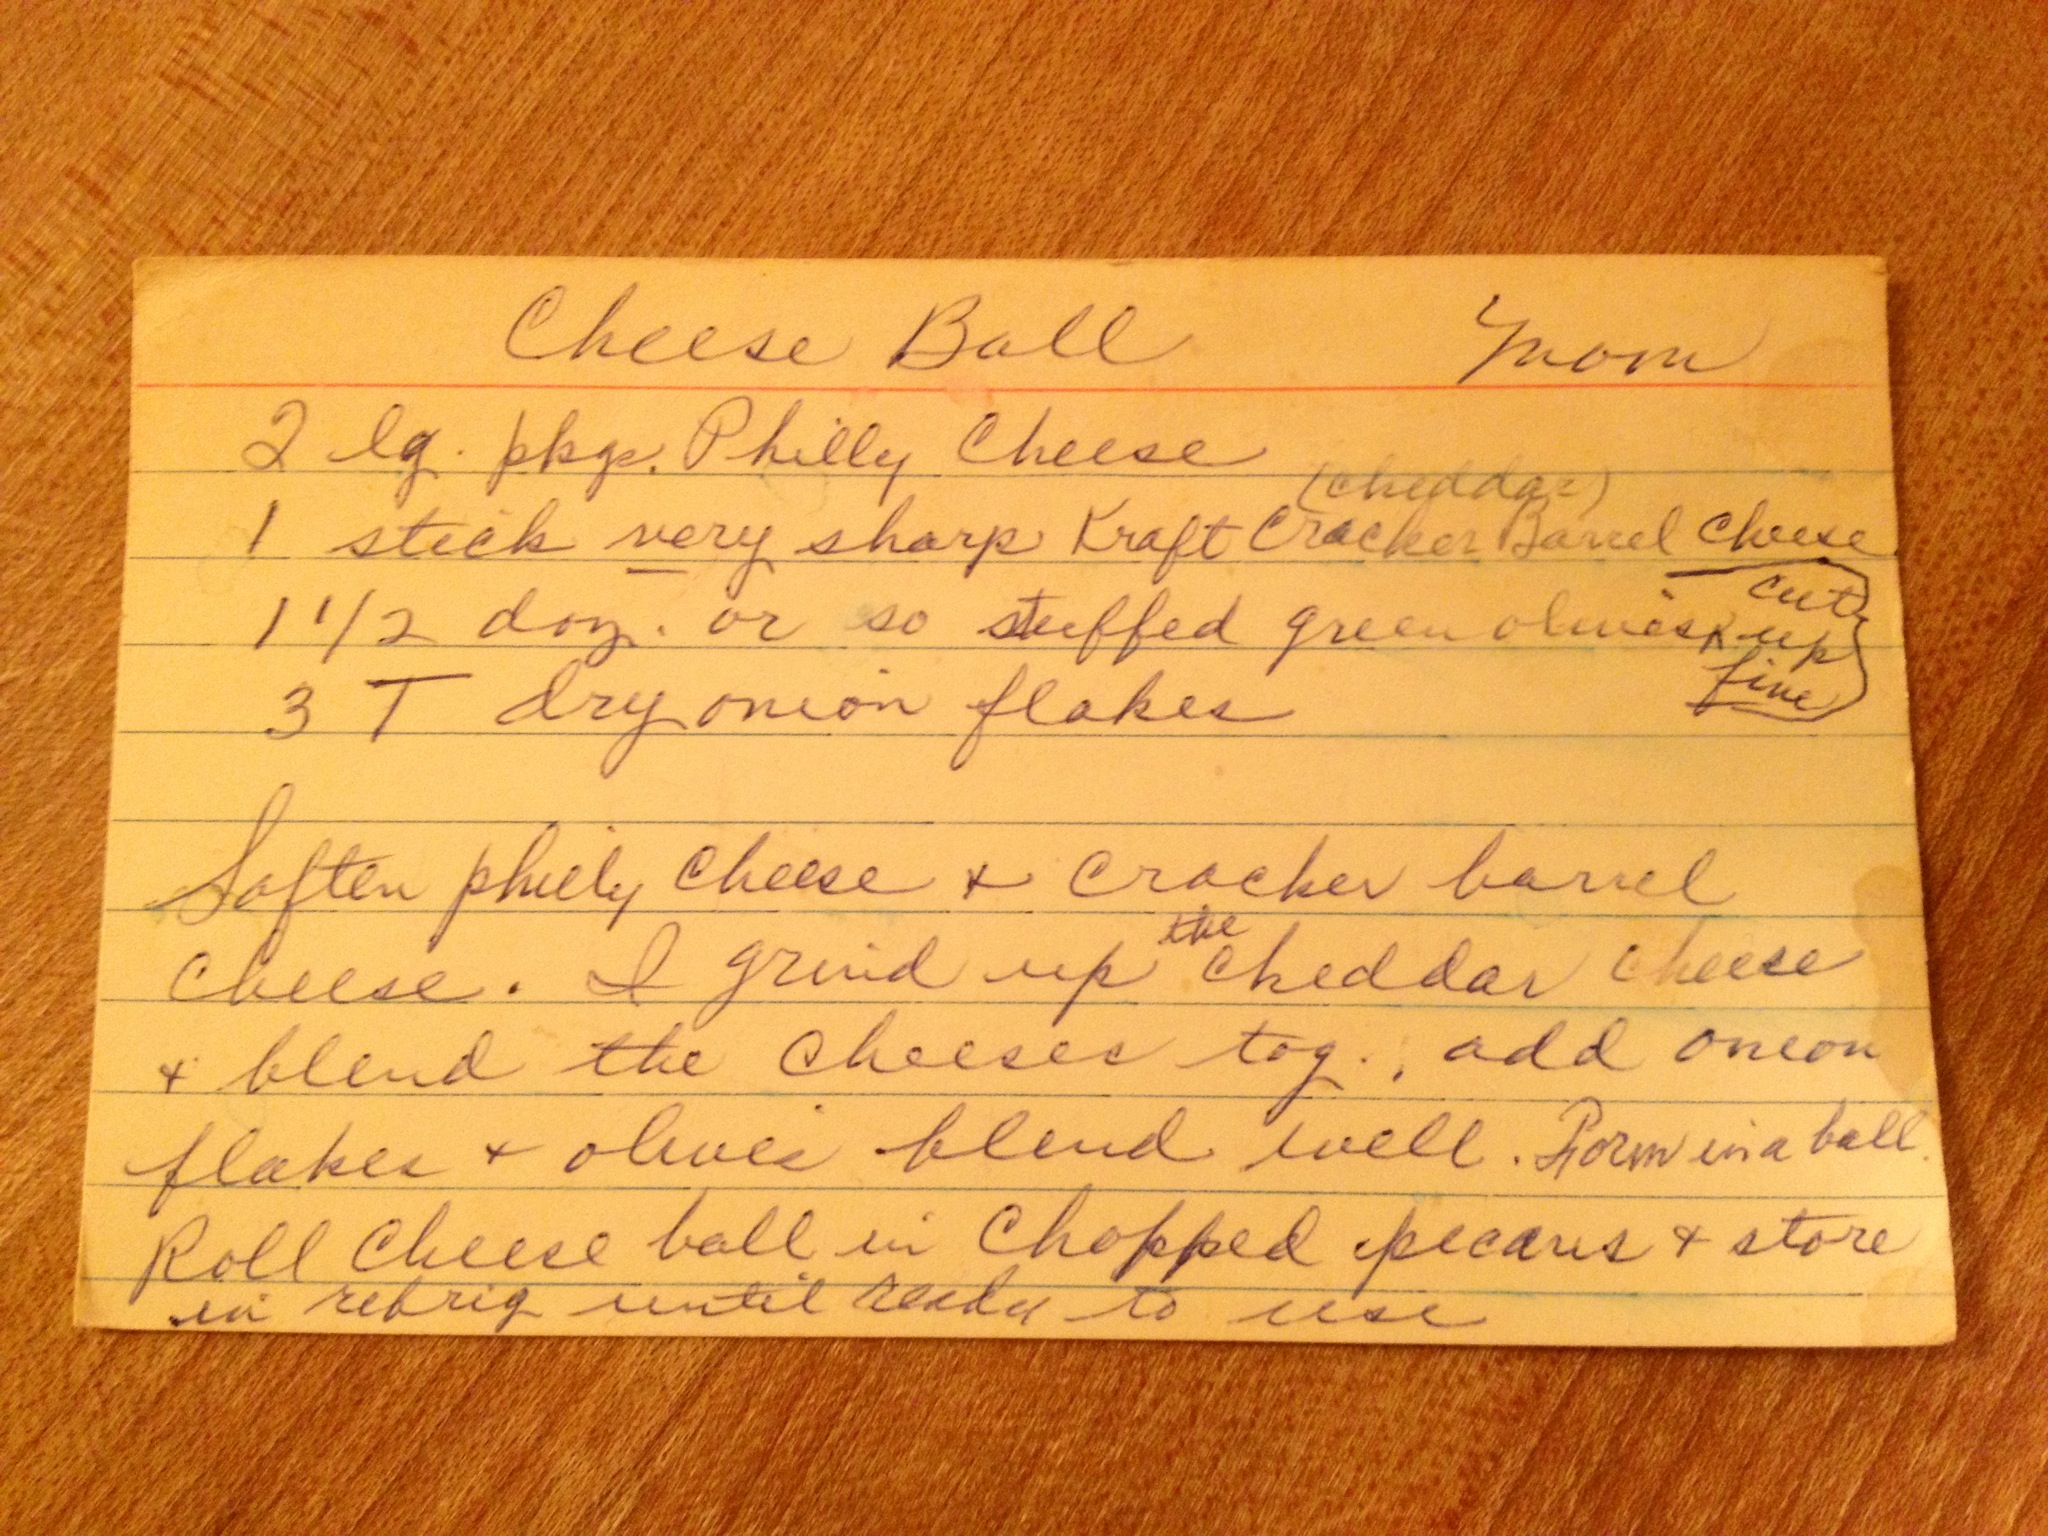 Cheese Ball Mom
2 lg. pkgs. Philly Cheese
(cheddar)
1 stick very sharp Kraft Cracker Barrel Cheese
1 1/2 doz. or so stuffed green olives cut
up
fine
3 T dry onion flakes
Soften philly cheese + cracker barrel
cheese. I grind up the cheddar cheese
+ blend the cheeses tog., add onion
flakes + olives blend well. Form in a ball.
Roll Cheese ball in Chopped pecans + store
in refrig until ready to use